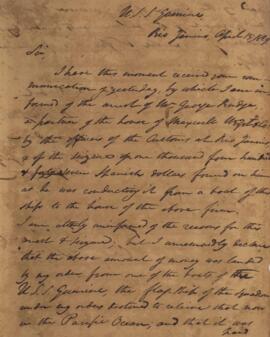 U.S.S Guerriere
Rio Janeiro, April 15, 1829
Sir
I have this moment received your com
munication of yesterday, by which I am in
formed of the arrest of Mr George Rudge,
a partner of the house of Maxwell Wright & Co
by the officers of the Customs at Rio Janeiro
& of the seizure of one thousand four hundred
& Spanish dollars found on him
as he was conducting it from a boat of this
ship to the house of the above firm.
I am utterly uninformed of the reasons for this
arrest & seizure, but I unreservedly declare
that the above amount of money was landed
by my order from one of the boats of the
U.S.S Guerriere, the flag Ship of the squadron
under my orders destined to relieve that now
in the Pacific Ocean, and that it was